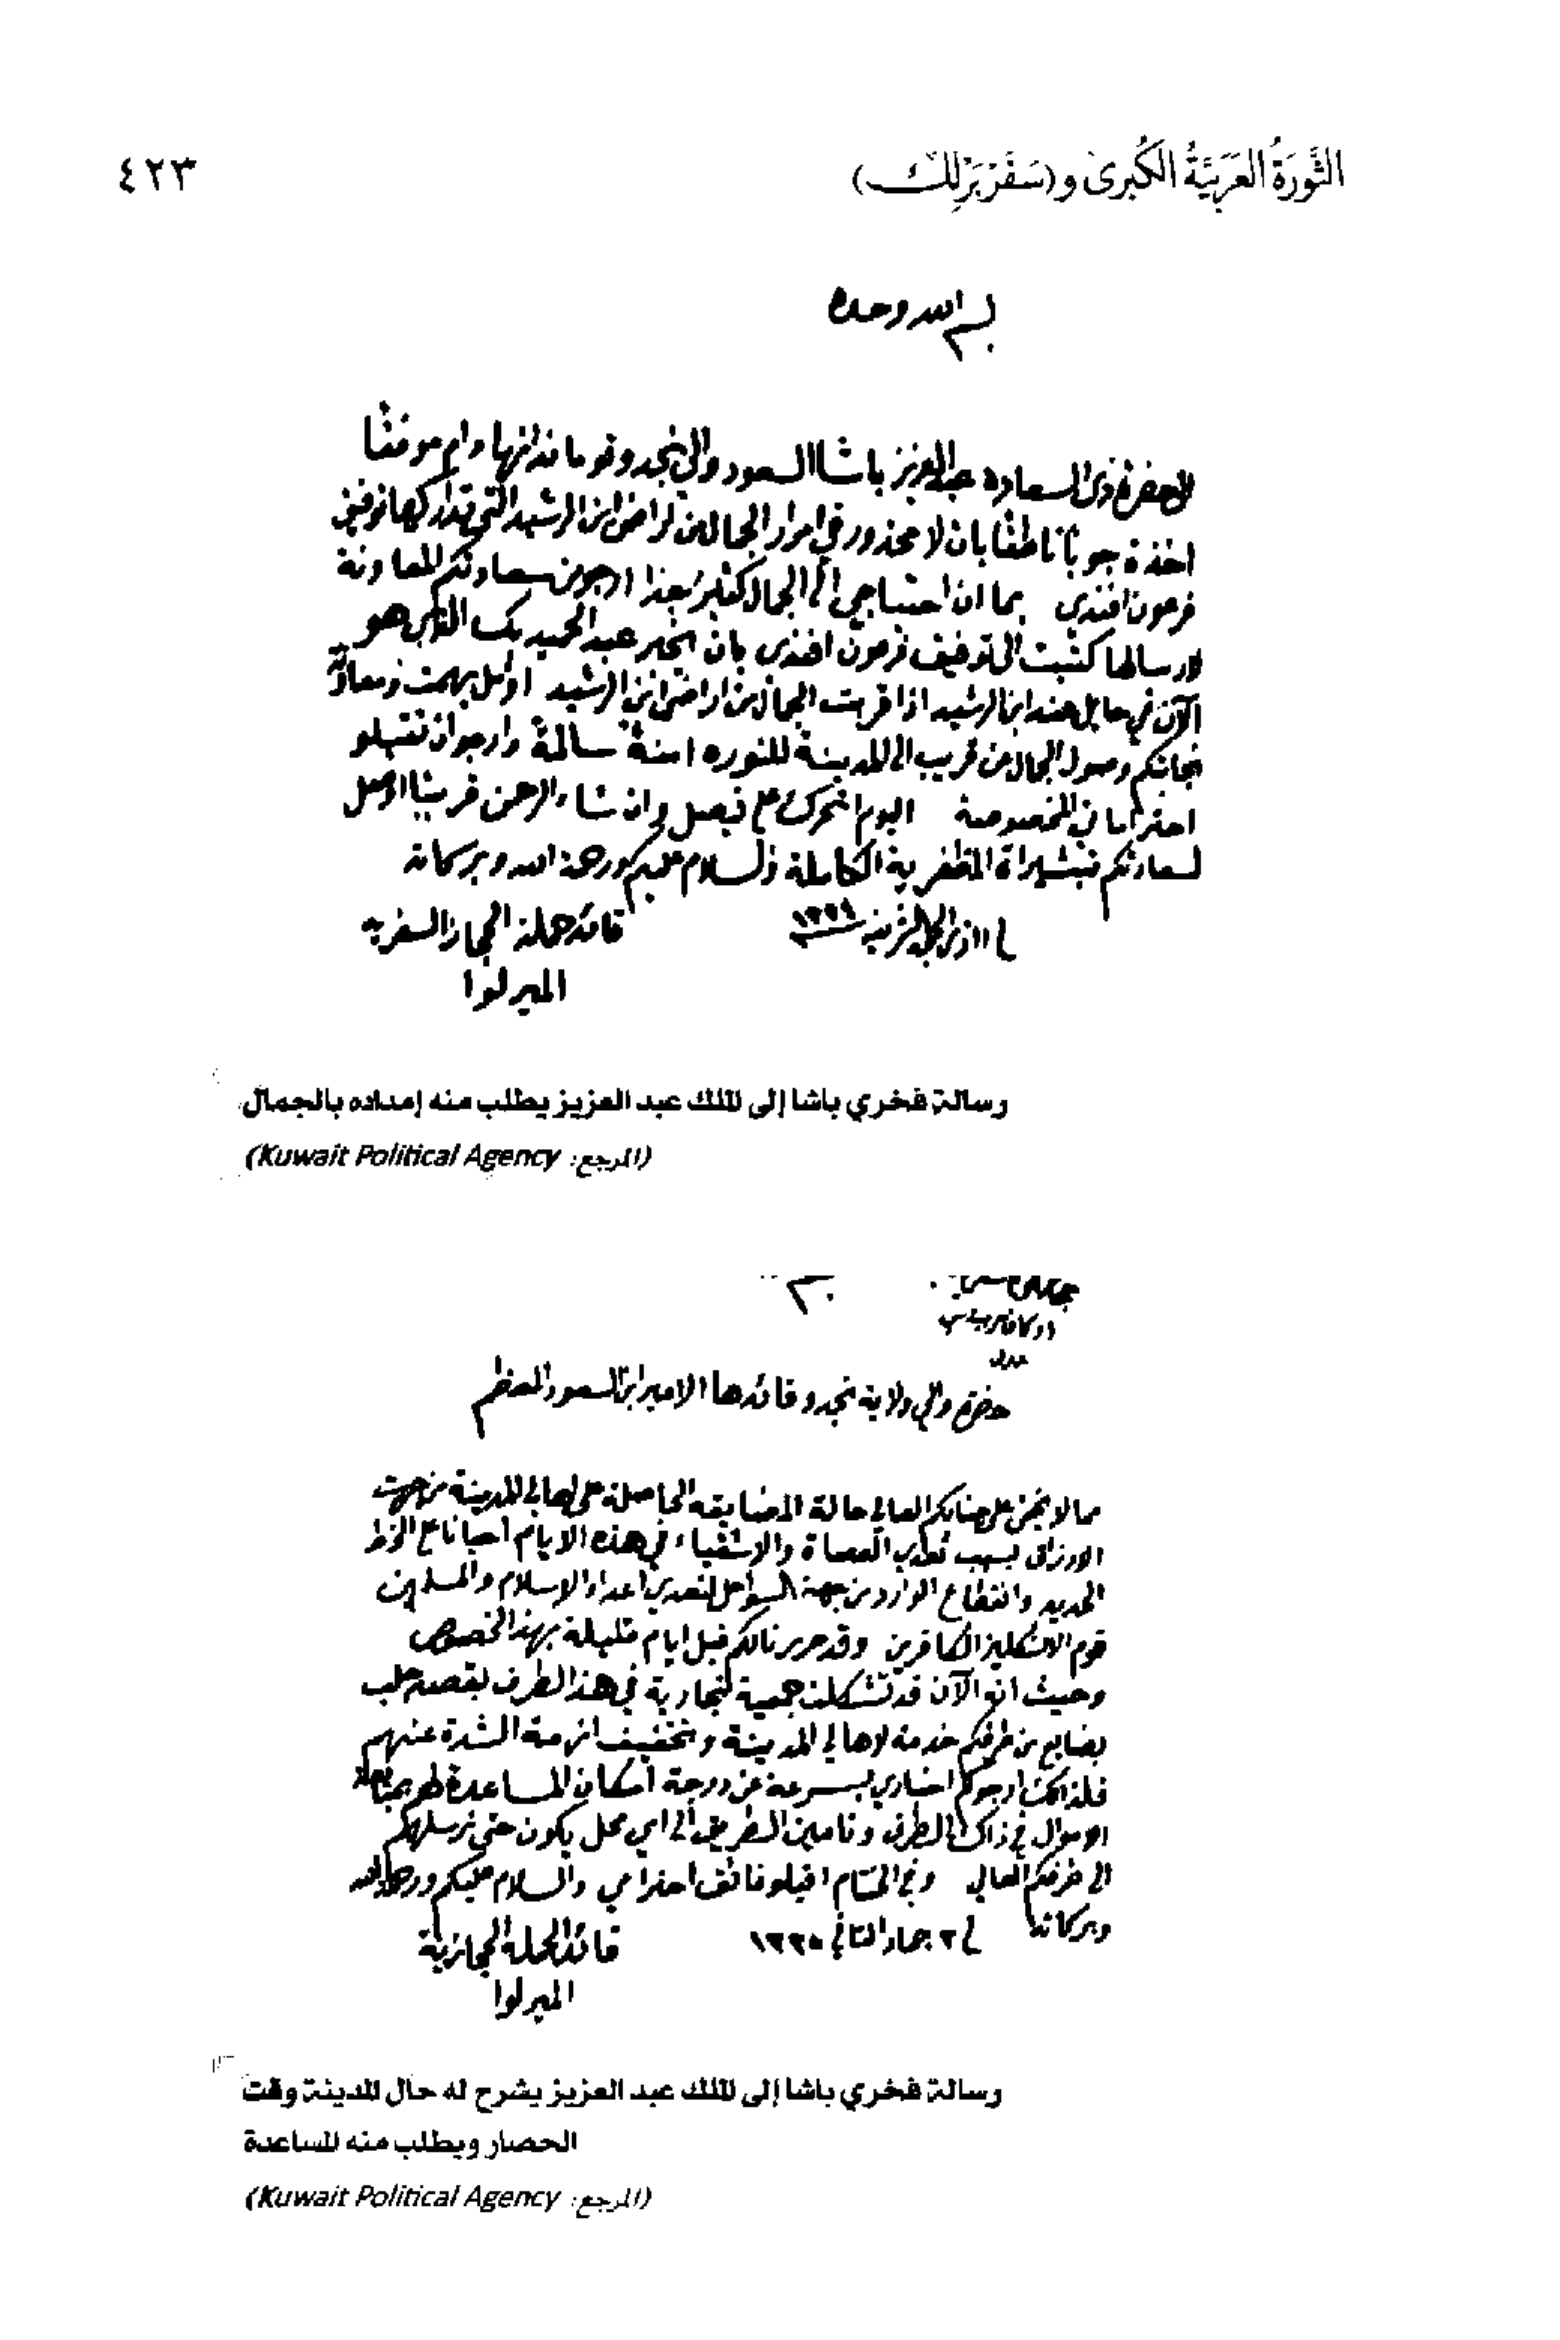 الثَّورَةُ العَرَبيَّةُ الكُبرىٰ و(سَفَر بَرلِك)
٤٢٣
بسم الله وحده
لحضرة ذى السعاده عبد العزيز باشا السعود والي نجد وقوماندانها دام موفقا
اخذة جوبًا ناطقًا بان لا محذور في امرار الجمال من اراضى ابن الرشيد التي تداركها توفيق
فرعون افندي بما ان احتياجي الى الجمال كثير ارجو من سعادتكم المعاونة
لارسالها كتبت الى توفيق فرعون افندى بان يخبر عبد الحميد بك الذي هو
الآن في حايل عند ابن الرشيد اذا قربت الجمال من اراضى ابن الرشيد اؤمل بهمت
وصول الجمال من قريب الى المدينة المنوره امنة سالمة وارجو ان تقبلو
احتراماتي المخصوصة اليوم اتحرك على فيصل وان شاء الرحمن قريبًا اوصل
لسعادتكم تبشيراة المظفرية الكاملة والسلام عليكم ورحمة الله وبركاته
في ١١
قائد حملة الحجاز السفريه
الميرلوا
رسالة فخري باشا إلى الملك عبد العزيز يطلب منه إمداده بالجمال
(المرجع: Kuwait Political Agency)
عدد
حضرة والي ولاية نجد وقائدها الامير ابن السعود المعظم
مما لا يخفى على جنابكم العالي حالة المضايقه الحاصلة على اهالي المدينة من جهت
الارزاق بسبب تعدي العصاة والاشقياء في هذه الايام احيانا على الخط
الحديد وانقطاع الوارد من جهة السواحل لتعدي اعداء الاسلام والمسلمين
قوم الانكليز الكافرين وقد حررنا لكم قبل ايام قليلة بهذا الخصوص
وحيث انه الآن قد تشكلت جمعية تجارية في هذا الطرف لقصد جلب
بضايع من طرفكم خدمة لاهالي المدينة وتخفيف ازمة الشدة عنهم
فلذلك ارجوكم اخباري بسرعة عن درجة امكان المساعدة
الاموال في ذاك الطرف وتامين الطريق الى اي محل يكون حتى نرسلهم
الى طرفكم العالي وفي الختام اقبلو فائق احترامي والسلام عليكم ورحمة الله
وبركاته في ٢ جماد الثاني ١٣٣٥
قائد الحملة الحجازية
الميرلوا
رسالة فخري باشا إلى الملك عبد العزيز يشرح له حال المدينة وقت
الحصار ويطلب منه المساعدة
(المرجع: Kuwait Political Agency)